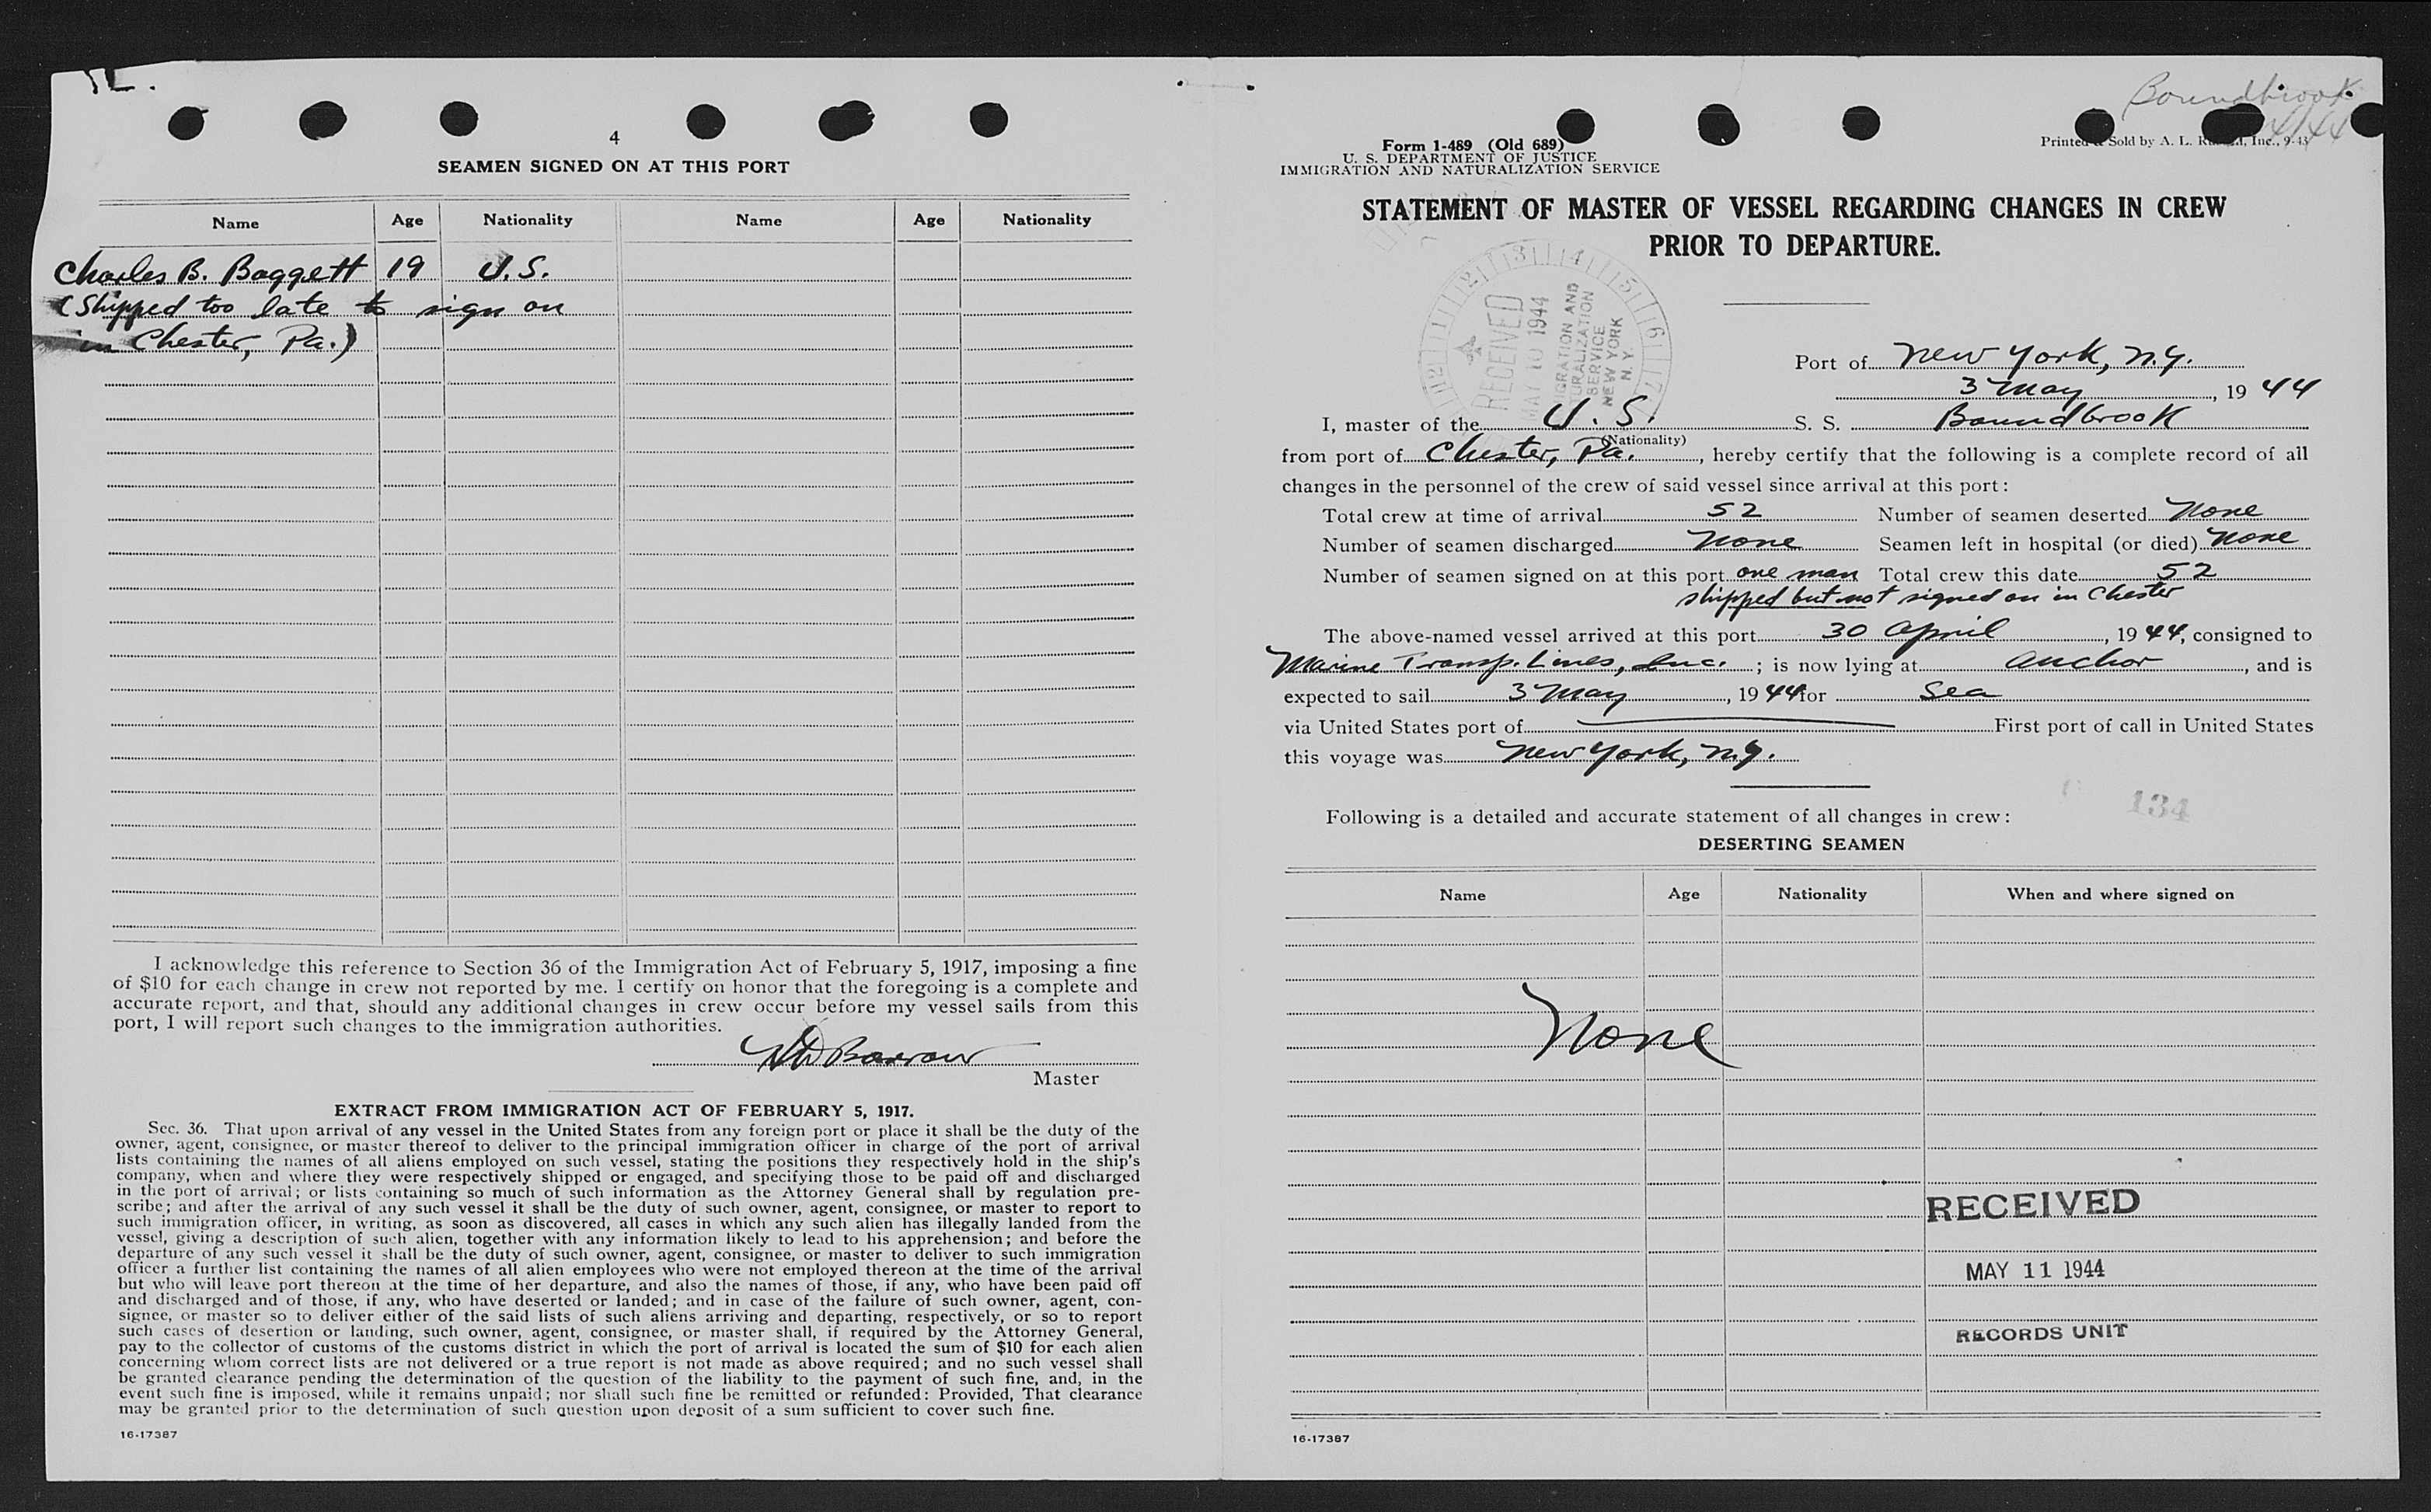 4
SEAMEN SIGNED ON AT THIS PORT
Name Age Nationality Name Age Nationality
Charles B. Baggett 19 U.S.
(Shipped too late to sign on
in Chester, Pa.)
I acknowledge this reference to Section 36 of the Immigration Act of February 5, 1917, imposing a fine
of $10 for each change in crew not reported by me. I certify on honor that the foregoing is a complete and
accurate report, and that, should any additional changes in crew occur before my vessel sails from this
port, I will report such changes to the immigration authorities.
Barrow
Master
EXTRACT FROM IMMIGRATION ACT OF FEBRUARY 5, 1917.
Sec. 36. That upon arrival of any vessel in the United States from any foreign port or place it shall be the duty of the
owner, agent, consignee, or master thereof to deliver to the principal immigration officer in charge of the port of arrival
lists containing the names of all aliens employed on such vessel, stating the positions they respectively hold in the ship's
company, when and where they were respectively shipped or engaged, and specifying those to be paid off and discharged
in the port of arrival; or lists containing so much of such information as the Attorney General shall by regulation pre-
scribe; and after the arrival of any such vessel it shall be the duty of such owner, agent, consignee, or master to report to
such immigration officer, in writing, as soon as discovered, all cases in which any such alien has illegally landed from the
vessel, giving a description of such alien, together with any information likely to lead to his apprehension; and before the
departure of any such vessel it shall be the duty of such owner, agent, consignee, or master to deliver to such immigration
officer a further list containing the names of all alien employees who were not employed thereon at the time of the arrival
but who will leave port thereon at the time of her departure, and also the names of those, if any, who have been paid off
and discharged and of those, if any, who have deserted or landed; and in case of the failure of such owner, agent, con-
signee, or master so to deliver either of the said lists of such aliens arriving and departing, respectively, or so to report
such cases of desertion or landing, such owner, agent, consignee, or master shall, if required by the Attorney General,
pay to the collector of customs of the customs district in which the port of arrival is located the sum of $10 for each alien
concerning whom correct lists are not delivered or a true report is not made as above required; and no such vessel shall
be granted clearance pending the determination of the question of the liability to the payment of such fine, and, in the
event such fine is imposed, while it remains unpaid; nor shall such fine be remitted or refunded: Provided, That clearance
may be granted prior to the determination of such question upon deposit of a sum sufficient to cover such fine.
16-17387
Boundbrook
Form 1-489 (Old 689)
U. S. DEPARTMENT OF JUSTICE
IMMIGRATION AND NATURALIZATION SERVICE
Printed & Sold by A. L. Inc., 9-43
STATEMENT OF MASTER OF VESSEL REGARDING CHANGES IN CREW
PRIOR TO DEPARTURE.
RECEIVED
MAY 10 1944
IMMIGRATION AND
NATURALIZATION
SERVICE
NEW YORK
N. Y.
Port of New York, N.Y.
3 May, 1944
I, master of the U. S. S. S. Boundbrook
(Nationality)
from port of Chester, Pa., hereby certify that the following is a complete record of all
changes in the personnel of the crew of said vessel since arrival at this port:
Total crew at time of arrival 52 Number of seamen deserted None
Number of seamen discharged None Seamen left in hospital (or died) None
Number of seamen signed on at this port one man Total crew this date 52
shipped but not signed on in Chester
The above-named vessel arrived at this port 30 April, 1944, consigned to
Marine Transp. Lines, Inc.; is now lying at anchor, and is
expected to sail 3 May, 1944 for Sea
via United States port of First port of call in United States
this voyage was New York, N.Y.
134
Following is a detailed and accurate statement of all changes in crew:
DESERTING SEAMEN
Name Age Nationality When and where signed on
None
RECEIVED
MAY 11 1944
RECORDS UNIT
16-17387